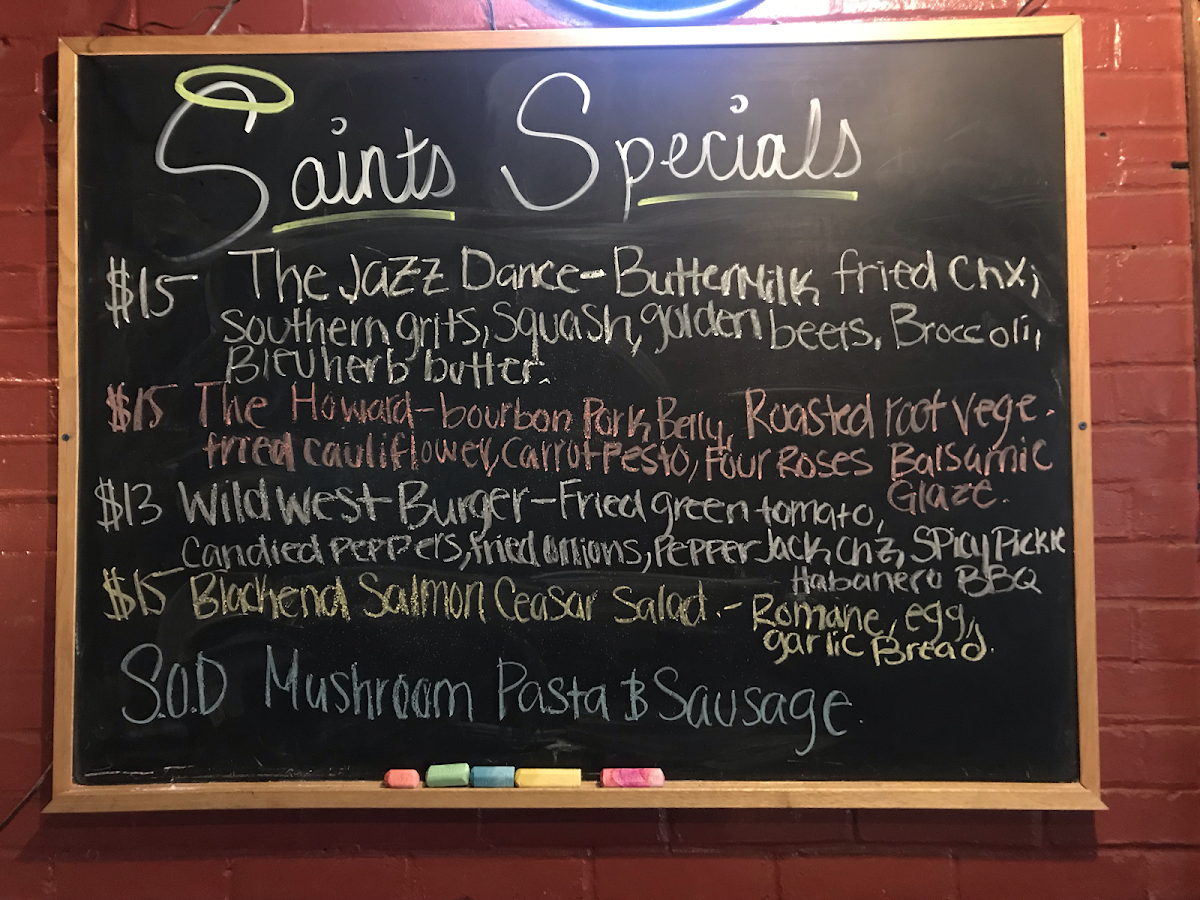 Saints Specials
$15 The Jazz Dance - Buttermilk fried chx,
southern grits, Squash, golden beets, Broccoli,
Bleu herb butter.
$15 The Howard - bourbon Pork Belly, Roasted root vege.
fried cauliflower, carrot Pesto, Four Roses Balsamic
Glaze.
$13 Wild West Burger - Fried green tomato,
Candied peppers, fried onions, Pepper Jack chz, Spicy Pickle
Habanero BBQ
$15 Blackend Salmon Ceasar Salad. - Romane, egg,
garlic Bread.
S.O.D Mushroom Pasta & Sausage.